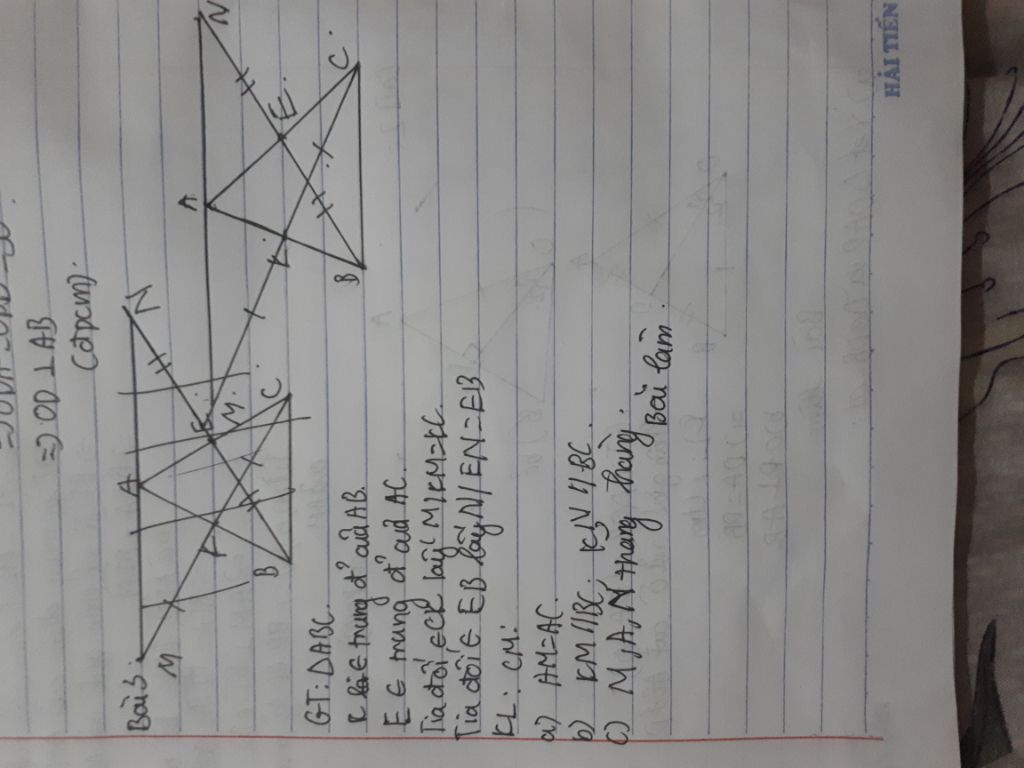 ⇒ OD ⊥ AB
(đpcm).
Bài 3:
A N
M K E C
B
N
A E. C.
K
M. B
GT: ΔABC.
K trung đ' của AB.
E ∈ trung đ' của AC.
Tia đối ∈ CK lấy M/KM=KC
Tia đối ∈ EB lấy N/EN=EB
KL: CM:
a) AM=AC.
b) KM//BC. KN // BC.
c) M, A, N thẳng hàng.
Bài làm
HẢI TIẾN